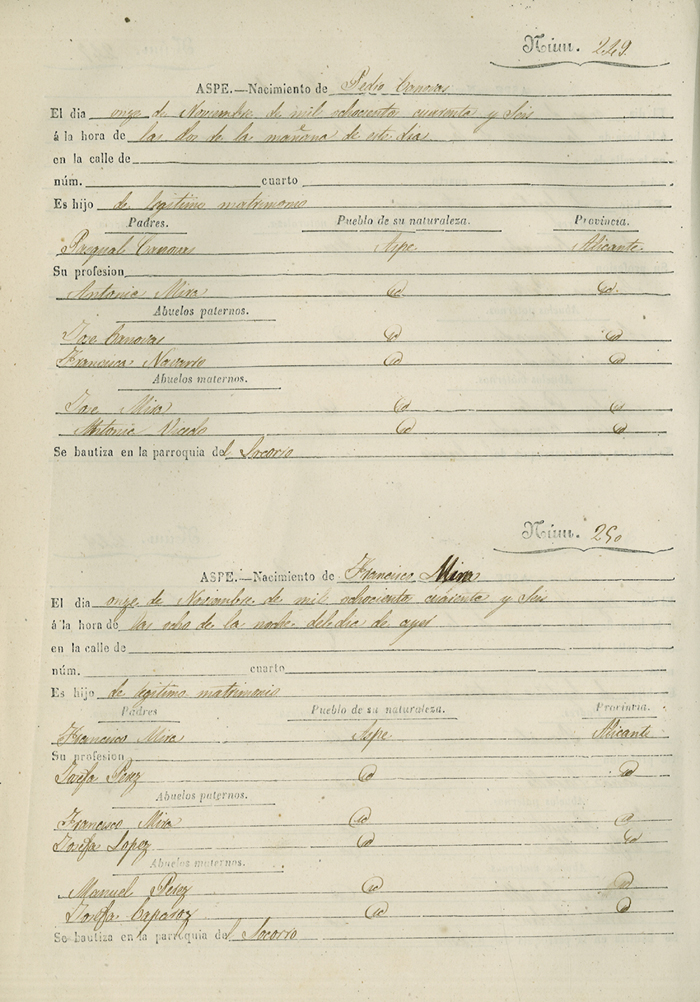 Núm. 249.
ASPE.—Nacimiento de Pedro Canovas
El dia onze de Noviembre de mil ochocientos cuarenta y Seis
á la hora de las dos de la mañana de este dia
en la calle de
núm. cuarto
Es hijo de legitimo matrimonio
Padres. Pueblo de su naturaleza. Provincia.
Pasqual Canovas Aspe Alicante.
Su profesion
Antonia Mira Id Id.
Abuelos paternos.
Jose Canovas Id Id
Francisca Navarro Id Id
Abuelos maternos.
Jose Mira Id Id
Antonia Id Id
Se bautiza en la parroquia del Socorro
Núm. 250
ASPE.—Nacimiento de Francisco Mira
El dia onze de Noviembre de mil ochocientos cuarenta y Seis
á la hora de las ocho de la noche del dia de ayer
en la calle de
núm. cuarto
Es hijo de legitimo matrimonio
Padres Pueblo de su naturaleza. Provincia.
Francisco Mira Aspe Alicante
Su profesion
Josefa Perez Id Id
Abuelos paternos.
Francisco Mira Id Id
Josefa Lopez Id Id
Abuelos maternos.
Manuel Perez Id Id
Josefa Id Id
Se bautiza en la parroquia del Socorro